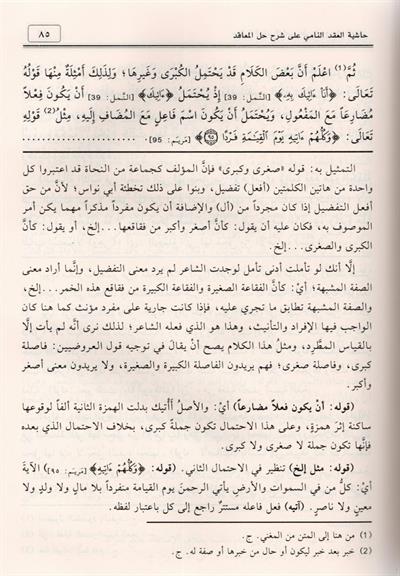 حاشية العقد النامي على شرح حل المعاقد
٨٥
ثُمَّ(1) اعْلَمْ أَنَّ بَعْضَ الْكَلَامِ قَدْ يَحْتَمِلُ الْكُبْرَى وَغَيرِهَا؛ وَلِذَلِكَ أَمْثِلَةٌ مِنْهَا قَوْلُهُ
تَعَالَى: ﴿أَنَا۠ ءَاتِيكَ بِهِۦ﴾ [النَّمل: 39] إِذْ يُحْتَمَلُ ﴿ءَاتِيكَ﴾ [النَّمل: 39] أَنْ يَكُونَ فِعْلاً
مُضَارِعاً مَعَ الْمَفْعُولِ، وَيُحْتَمَلُ أَنْ يَكُونَ اسْمَ فَاعِلٍ مَعَ الْمُضَافِ إِلَيهِ، مِثْلُ(2) قَوْلِهِ
تَعَالَى: ﴿وَكُلُّهُمْ ءَاتِيهِ يَوْمَ ٱلْقِيَـٰمَةِ فَرْدًا ۝٩٥﴾ [مَريَم: 95] ..............................
التمثيل به: قوله «صغرى وكبرى» فإنَّ المؤلف كجماعة من النحاة قد اعتبروا كل
واحدة من هاتين الكلمتين (أفعل) تفضيل، وبنوا على ذلك تخطئة أبي نواس؛ لأنَّ من حق
أفعل التفضيل إذا كان مجرداً من (أل) والإضافة أن يكون مفرداً مذكراً مهما يكن أمر
الموصوف به، فكان عليه أن يقول: كأنَّ أصغر وأكبر من فقاقعها...إلخ، أو يقول: كأنَّ
الكبرى والصغرى...إلخ.
إلَّا أنك لو تأملت أدنى تأمل لوجدت الشاعر لم يرد معنى التفضيل، وإنَّما أراد معنى
الصفة المشبهة؛ أي: كأنَّ الفقاعة الصغيرة والفقاعة الكبيرة من فقاقع هذه الخمر...إلخ،
والصفة المشبهة تطابق ما تجري عليه، فإذا كانت جارية على مفرد مؤنث كما هنا كان
الواجب فيها الإفراد والتأنيث، وهذا هو الذي فعله الشاعر؛ لذلك نرى أنَّه لم يأت إلَّا
بالقياس المطَّرِد، ومثلُ هذا الكلام يصح أنْ يقالَ في توجيه قول العروضيين: فاصلة
كبرى، وفاصلة صغرى؛ فهم يريدون الفاصلة الكبيرة والصغيرة، ولا يريدون معنى أصغر
وأكبر.
(قوله: أنْ يكونَ فعلاً مضارعاً) أيْ: والأصلُ أَأْتيكَ بدلت الهمزة الثانية ألفاً لوقوعها
ساكنة إثرَ همزةٍ، وعلى هذا الاحتمال تكون جملةً كبرى، بخلاف الاحتمال الذي بعده
فإنَّها تكون جملة لا صغرى ولا كبرى.
(قوله: مثل إلخ) تنظير في الاحتمال الثاني. (قوله: ﴿وَكُلُّهُمْ ءَاتِيهِ﴾ [مَريَم: ٩٥]) الآيةَ
أيْ: كلٌّ من في السموات والأرضِ يأتي الرحمنَ يوم القيامة منفرداً بلا مالٍ ولا ولدٍ ولا
معينٍ ولا ناصرٍ. (آتيه) فعل فاعله مستترٌ راجع إلى كل باعتبار لفظه.
(1) من هنا إلى المتن من المغني. ج.
(2) خبر بعد خبر ليكون أو حال من خبرها أو صفة له. ج.